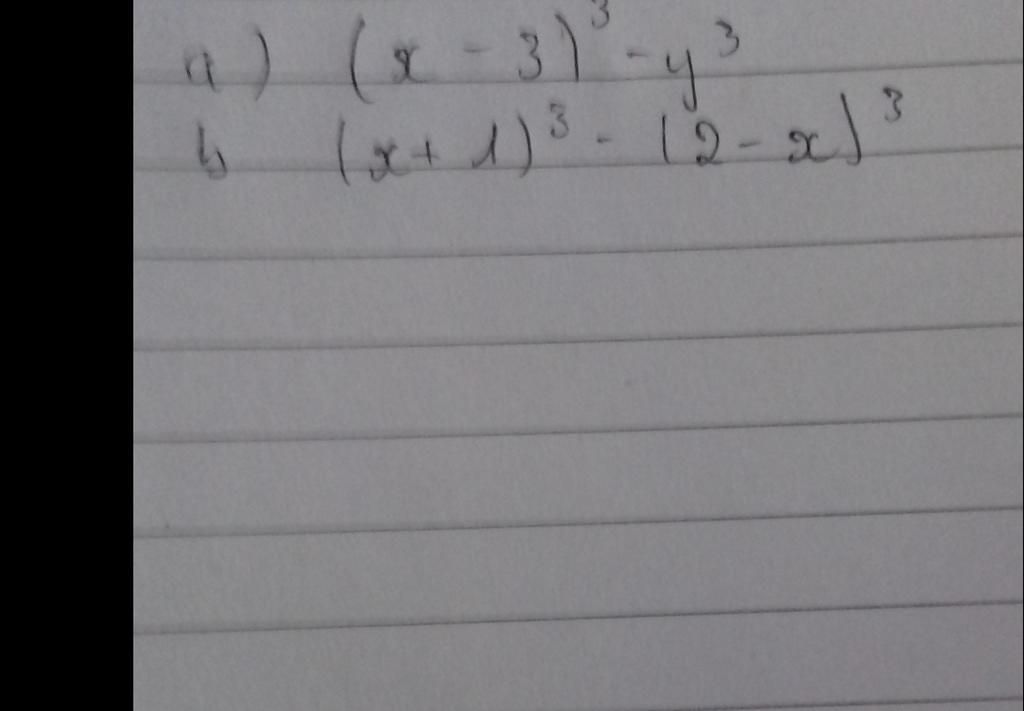 a) (x - 3)³ - y³
b (x + 1)³ - (2 - x)³